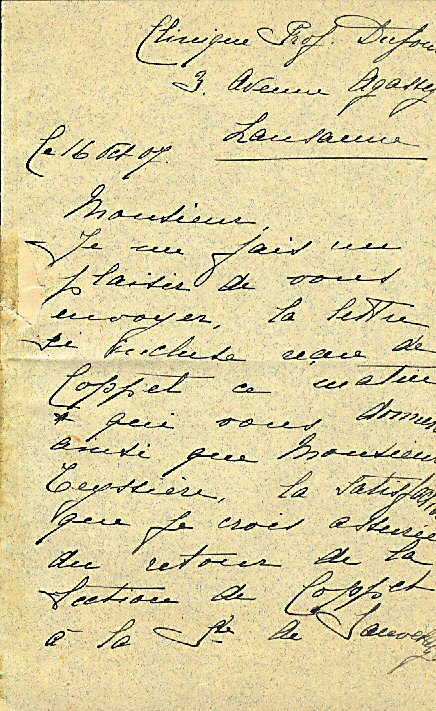 Clinique Prof. Dufour
3. Avenue Agassiz
Lausanne
Le 16 Oct 07
Monsieur,
Je me fais un
plaisir de vous
envoyer, la lettre
ci incluse reçue de
Coppet ce matin
& qui vous donnera
ainsi que Monsieur
Teyssière, la satisfaction
que je crois assurée
du retour de la
Section de Coppet
à la Sté de Sauvetage